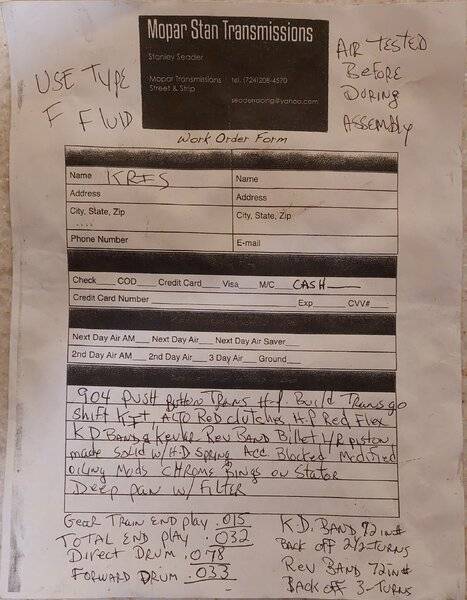 Mopar Stan Transmissions
Stanley Seader
Mopar Transmissions tel. (724)208-4570
Street & Strip
seaderracing@yahoo.com
USE TYPE
F FLUID
AIR TESTED
BEFORE
DURING
ASSEMBLY
Work Order Form
Name KRIS Name
Address Address
City, State, Zip City, State, Zip
Phone Number E-mail
Check___ COD___ Credit Card___ Visa___ M/C CASH
Credit Card Number Exp CVV#
Next Day Air AM___ Next Day Air___ Next Day Air Saver___
2nd Day Air AM___ 2nd Day Air___ 3 Day Air___ Ground___
904 PUSH Button TRANS H-P. Build Transgo
Shift KIT, ALTO RED Clutches, H.P Red Flex
K.D Band & Kevlar Rev BAND Billet L/R piston,
made Solid w/ H.D Spring Acc Blocked Modified
oiling Mods CHROME Rings on Stator
Deep pan w/ Filter
Gear Train END play .015
TOTAL END Play .032
Direct DRUM .078
FORWARD DRUM .033
K.D. BAND 72 in#
BACK off 2 1/2-TURNS
Rev BAND 72 in#
BACK off 3-TURNS